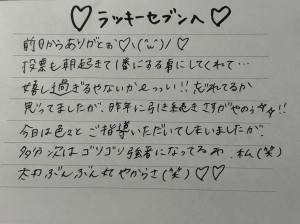 ♡ラッキーセブンへ♡
前日からありがとぉ♡\(^ω^)/♡
投票も朝起きて1番にする言にしてくれて…
嬉し過ぎるやないかぃっ!! 忘れてるか
思ってましたが、昨年に引き続きさすがやのぅ!!
今日は色々とご指導いただいてしまいましたが、
多分次はゴリゴリ強者になってるわ、私(笑)
太刀ぶんぶん丸やからさ(笑)♡♡